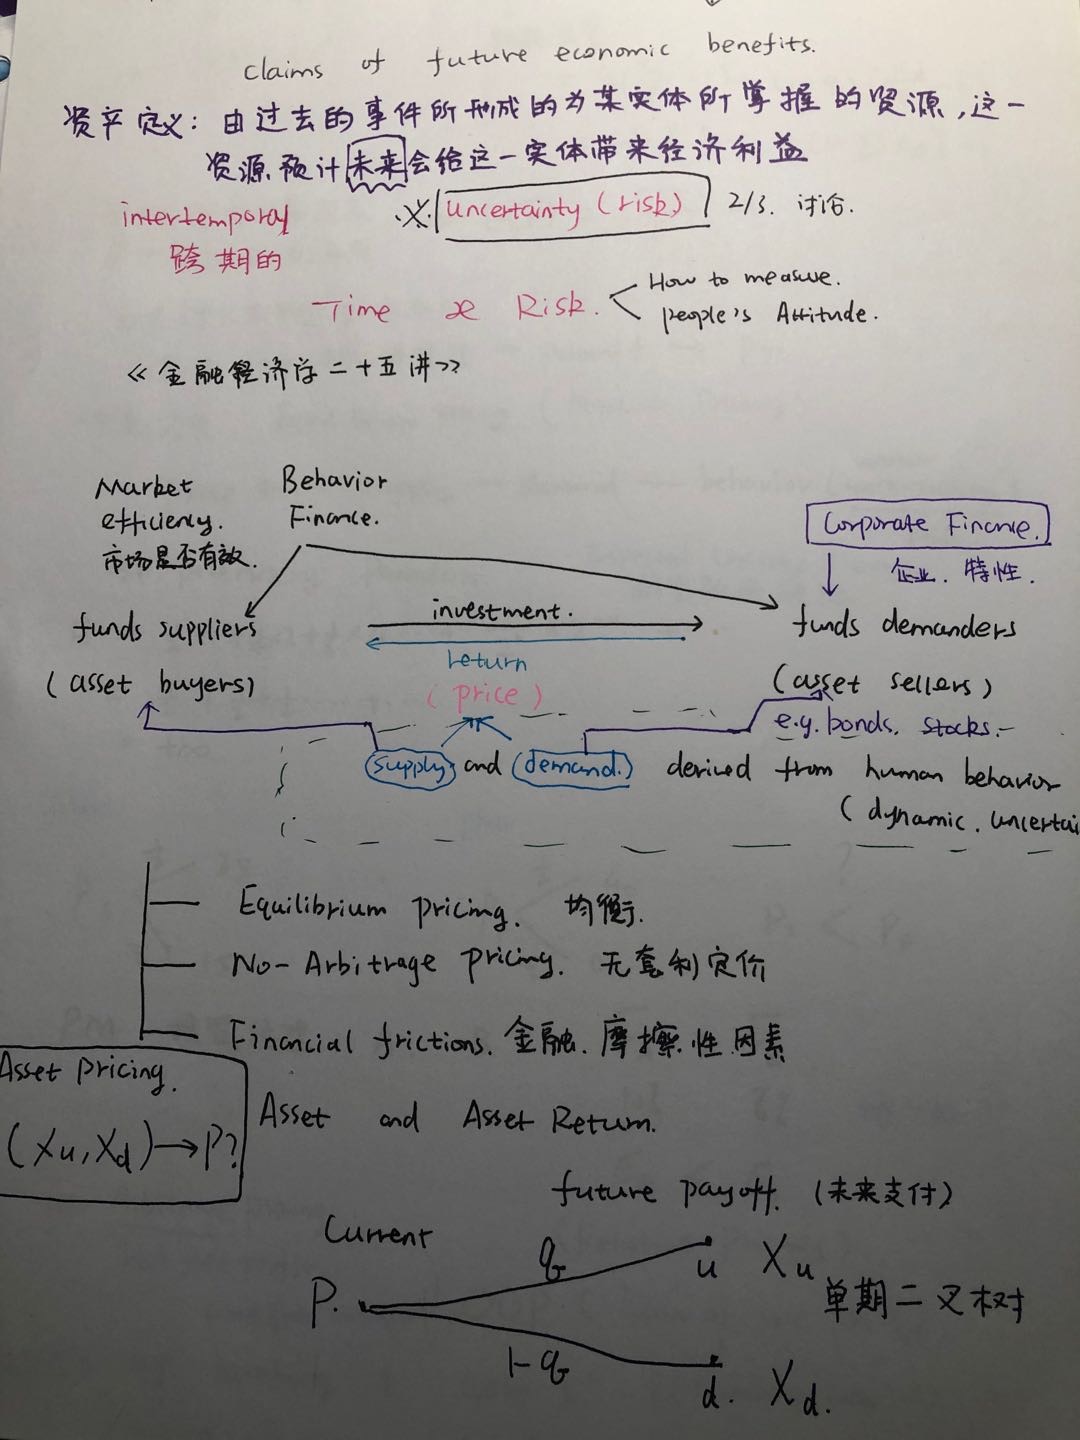 claims of future economic benefits.
资产定义：由过去的事件所形成的为某实体所掌握的资源，这一
资源预计未来会给这一实体带来经济利益
intertemporal
跨期的
※ Uncertainty (risk) 2/3. 讨论.
Time & Risk.
How to measure.
people's Attitude.
《金融经济学二十五讲》
Market
efficiency.
市场是否有效.
Behavior
Finance.
Corporate Finance.
企业. 特性.
funds suppliers
(asset buyers)
investment.
return
(price)
funds demanders
(asset sellers)
e.g. bonds. stocks.
supply and demand. derived from human behavior
(dynamic. uncertai
Equilibrium pricing. 均衡.
No-Arbitrage pricing. 无套利定价
Financial frictions. 金融.摩擦性因素
Asset pricing.
(Xu, Xd) → P?
Asset and Asset Return.
future payoff. (未来支付)
Current
P.
q
u Xu
单期二叉树
1-q
d. Xd.